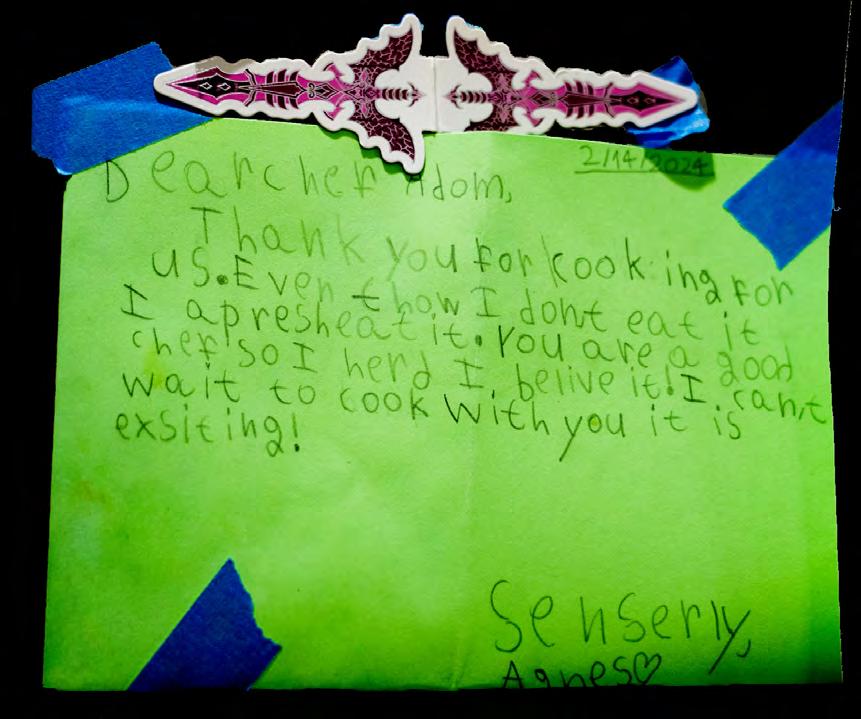 2/14/2024
Dear chef Adom,
Thank you for kook ing for
us. Even thow I dont eat it
I apresheat it. You are a good
chef so I herd I belive it! I can,t
wait to cook with you it is
exsiting!
Senserly,
Agnes♡